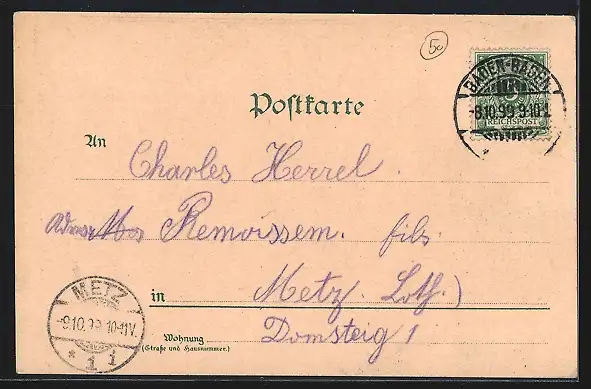 5e
BADEN-BADEN
-8.10.99.9-10V.
REICHSPOST
Postkarte
An Charles Herrel.
Remoissem. fils.
in Metz. Loth.)
Wohnung Domsteig 1
(Straße und Hausnummer.)
METZ
-9.10.99.10-11V.
* 1 i